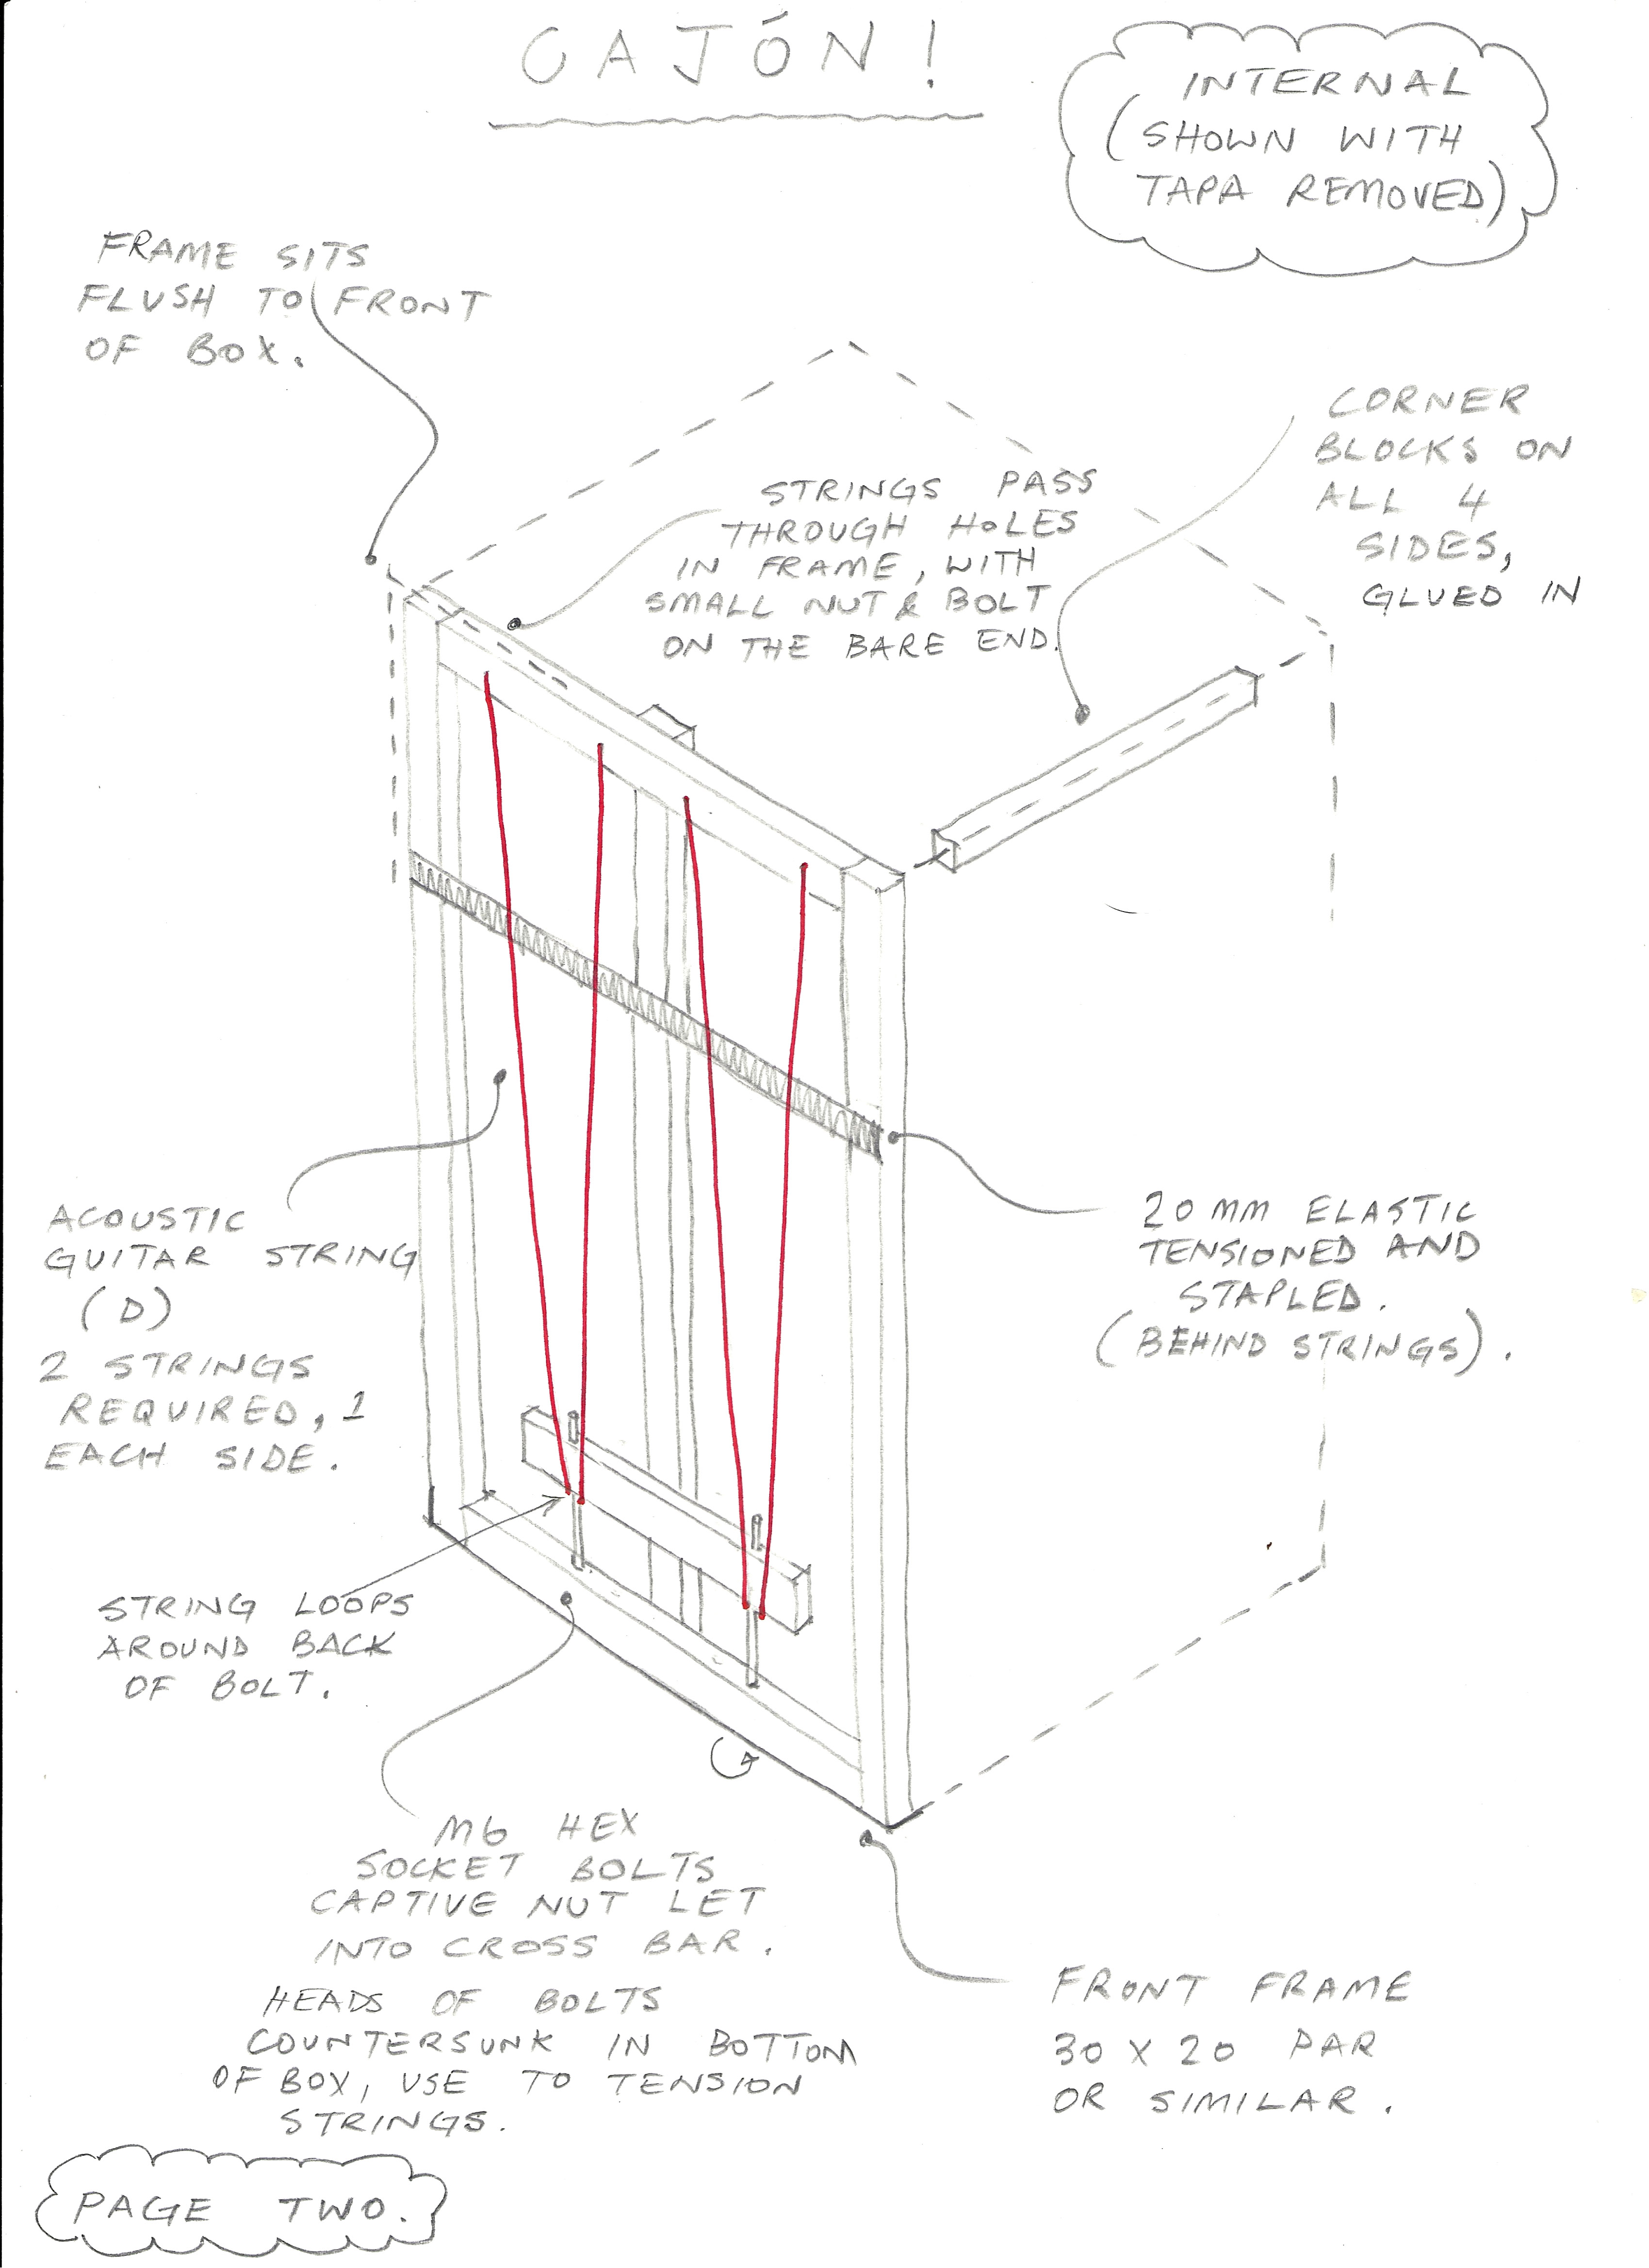 CAJÓN!
INTERNAL
(SHOWN WITH
TAPA REMOVED)
FRAME SITS
FLUSH TO FRONT
OF BOX.
CORNER
BLOCKS ON
ALL 4
SIDES,
GLUED IN
STRINGS PASS
THROUGH HOLES
IN FRAME, WITH
SMALL NUT & BOLT
ON THE BARE END.
ACOUSTIC
GUITAR STRING
(D)
2 STRINGS
REQUIRED, 1
EACH SIDE.
20MM ELASTIC
TENSIONED AND
STAPLED.
(BEHIND STRINGS).
STRING LOOPS
AROUND BACK
OF BOLT.
M6 HEX
SOCKET BOLTS
CAPTIVE NUT LET
INTO CROSS BAR.
HEADS OF BOLTS
COUNTERSUNK IN BOTTOM
OF BOX, USE TO TENSION
STRINGS.
FRONT FRAME
30 X 20 PAR
OR SIMILAR.
PAGE TWO.